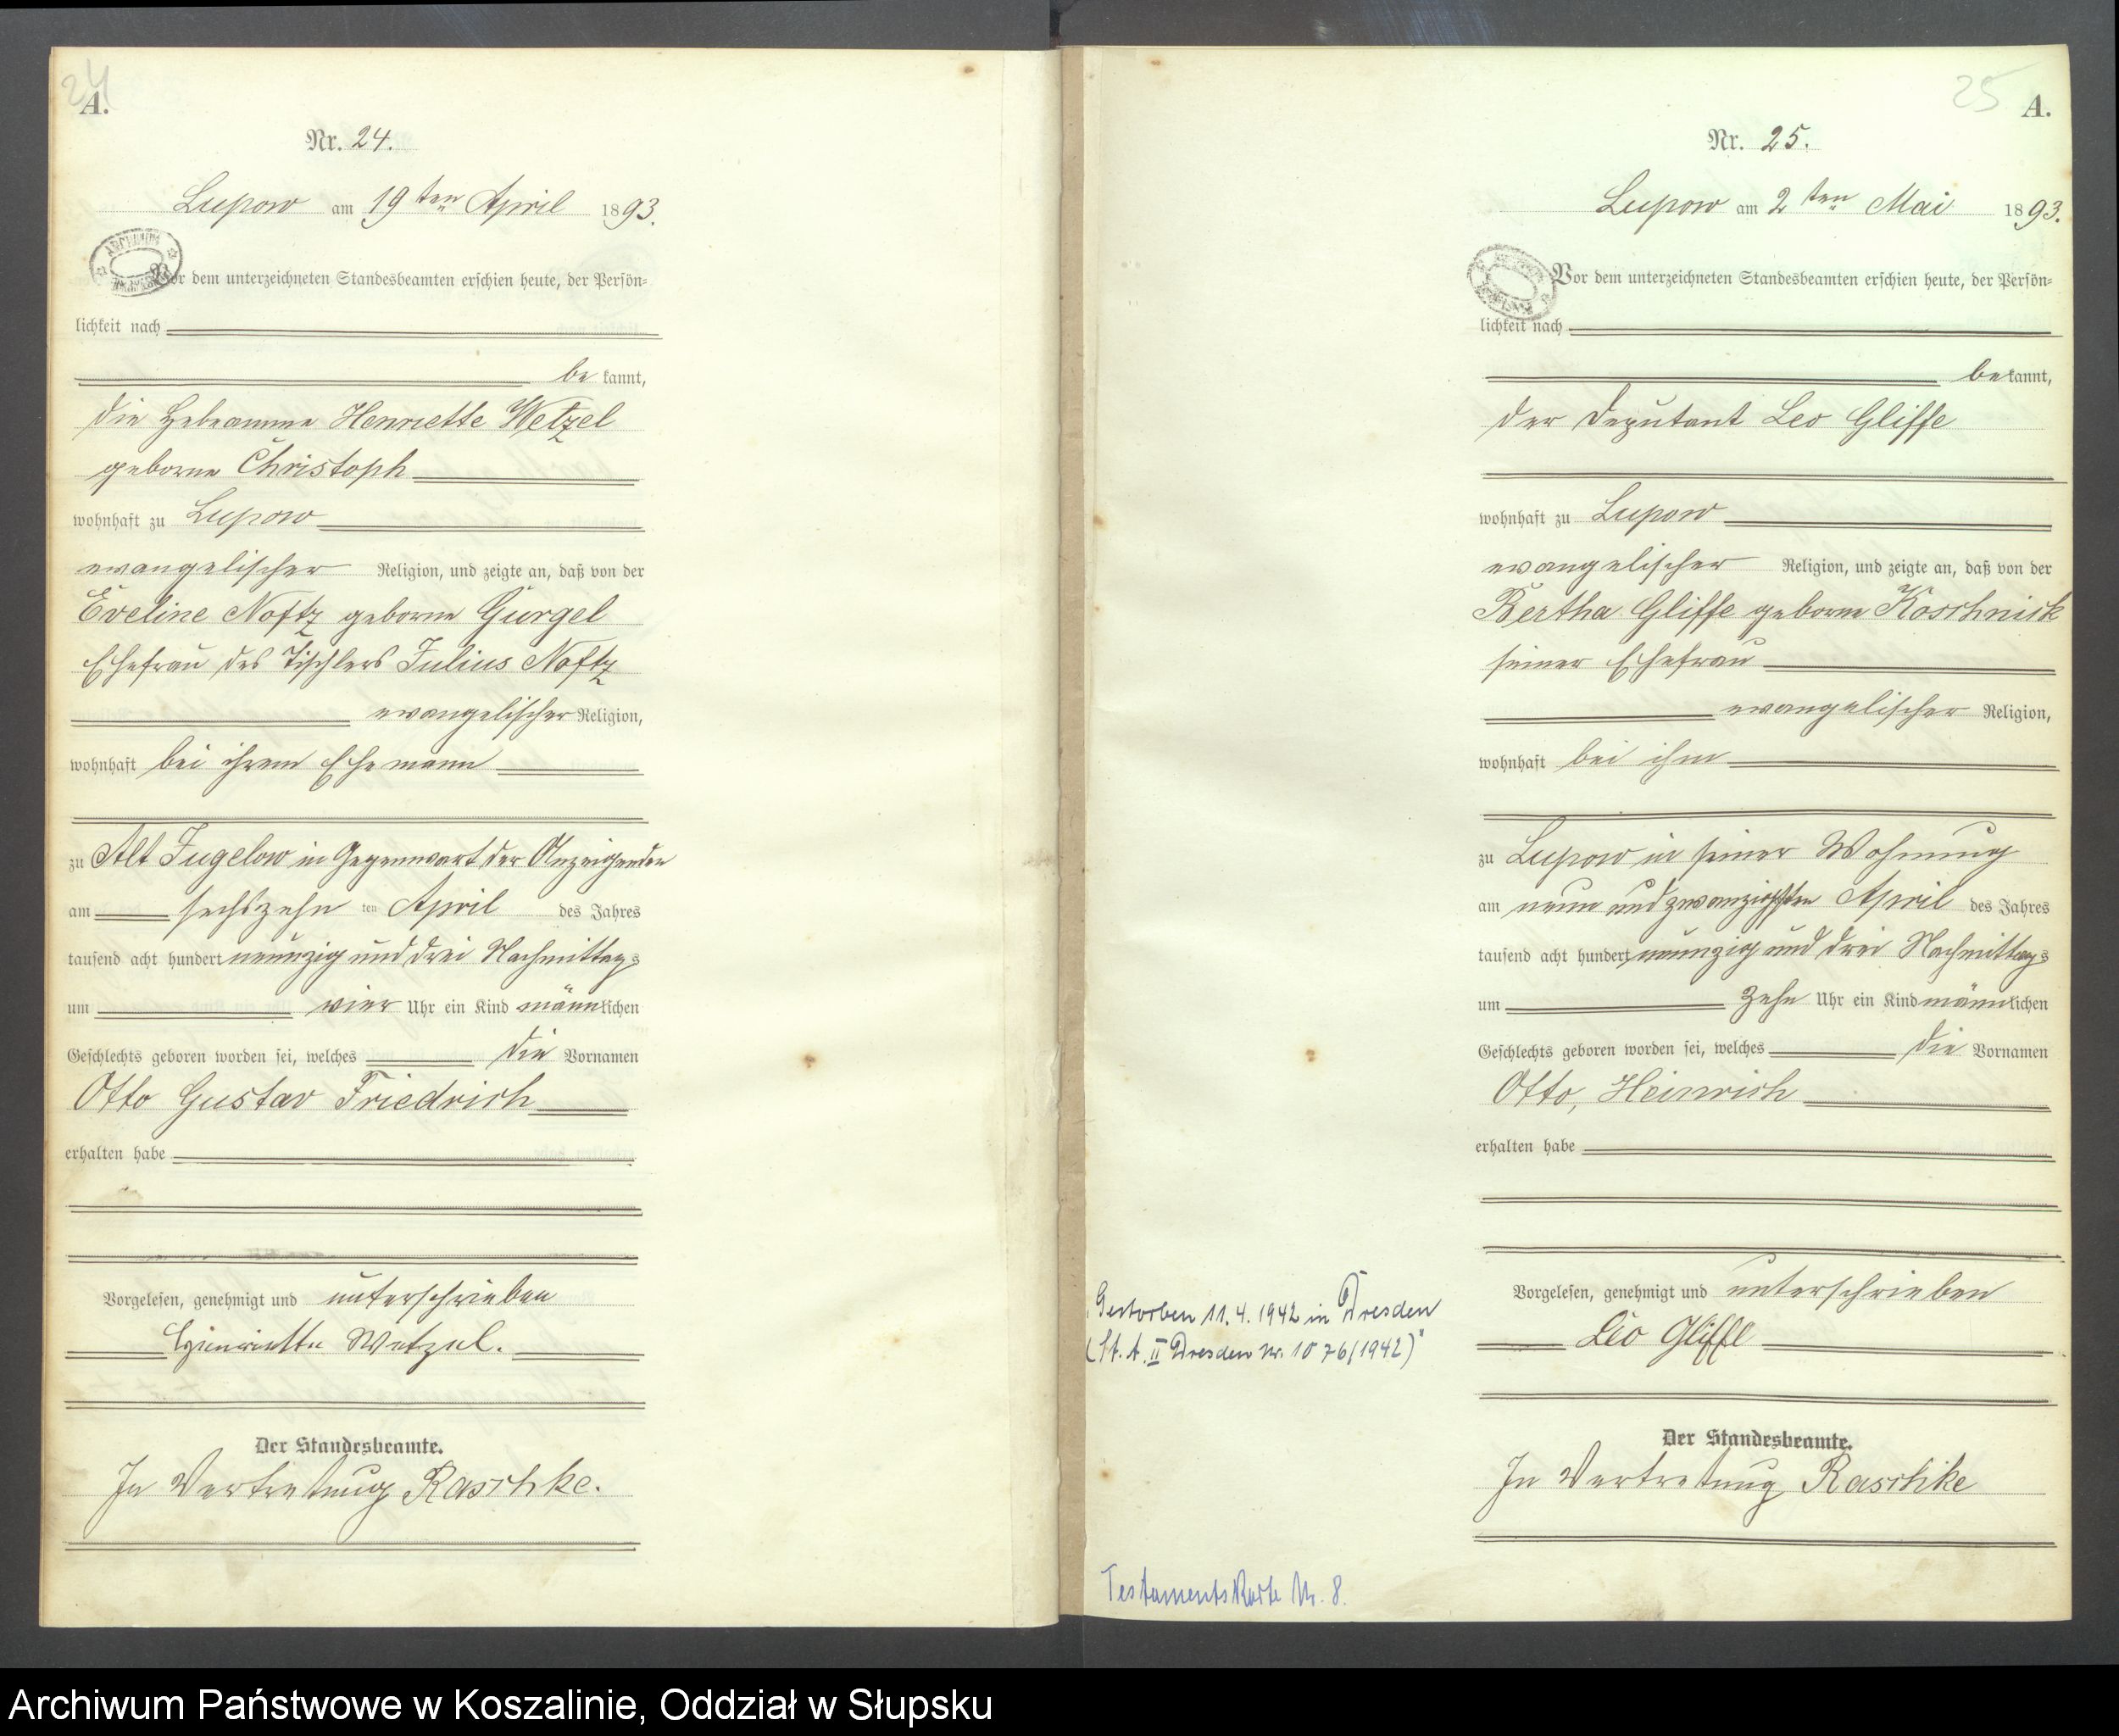 24
A.
Nr. 24.
Lupow am 19ten April 1893.
Vor dem unterzeichneten Standesbeamten erschien heute, der Persön-
lichkeit nach
be kannt,
die Hebeamme Henriette Wetzel
geborne Christoph
wohnhaft zu Lupow
evangelischer Religion, und zeigte an, daß von der
Eveline Noftz geborne Gurgel
Ehefrau des Tischlers Julius Noftz
evangelischer Religion,
wohnhaft bei ihrem Ehemann
zu Alt Jugelow in Gegenwart der Anzeigenden
am sechszehn ten April des Jahres
tausend acht hundert neunzig und drei Nachmittags
um vier Uhr ein Kind männlichen
Geschlechts geboren worden sei, welches die Vornamen
Otto Gustav Friedrich
erhalten habe
Vorgelesen, genehmigt und unterschrieben
Henriette Wetzel.
Der Standesbeamte.
In Vertretung Raschke.
25
A.
Nr. 25.
Lupow am 2ten Mai 1893.
Vor dem unterzeichneten Standesbeamten erschien heute, der Persön-
lichkeit nach
bekannt,
der Deputant Leo Gliffe
wohnhaft zu Lupow
evangelischer Religion, und zeigte an, daß von der
Bertha Gliffe geborne Koschnick
seiner Ehefrau
evangelischer Religion,
wohnhaft bei ihm
zu Lupow in seiner Wohnung
am neun und zwanzigsten April des Jahres
tausend acht hundert neunzig und drei Nachmittags
um zehn Uhr ein Kind männlichen
Geschlechts geboren worden sei, welches die Vornamen
Otto, Heinrich
erhalten habe
Vorgelesen, genehmigt und unterschrieben
Leo Gliffe
Der Standesbeamte.
In Vertretung Raschke
Gestorben 11.4.1942 in Dresden
(St. A. II Dresden Nr. 1076/1942)
Testamentskarte Nr. 8.
Archiwum Państwowe w Koszalinie, Oddział w Słupsku